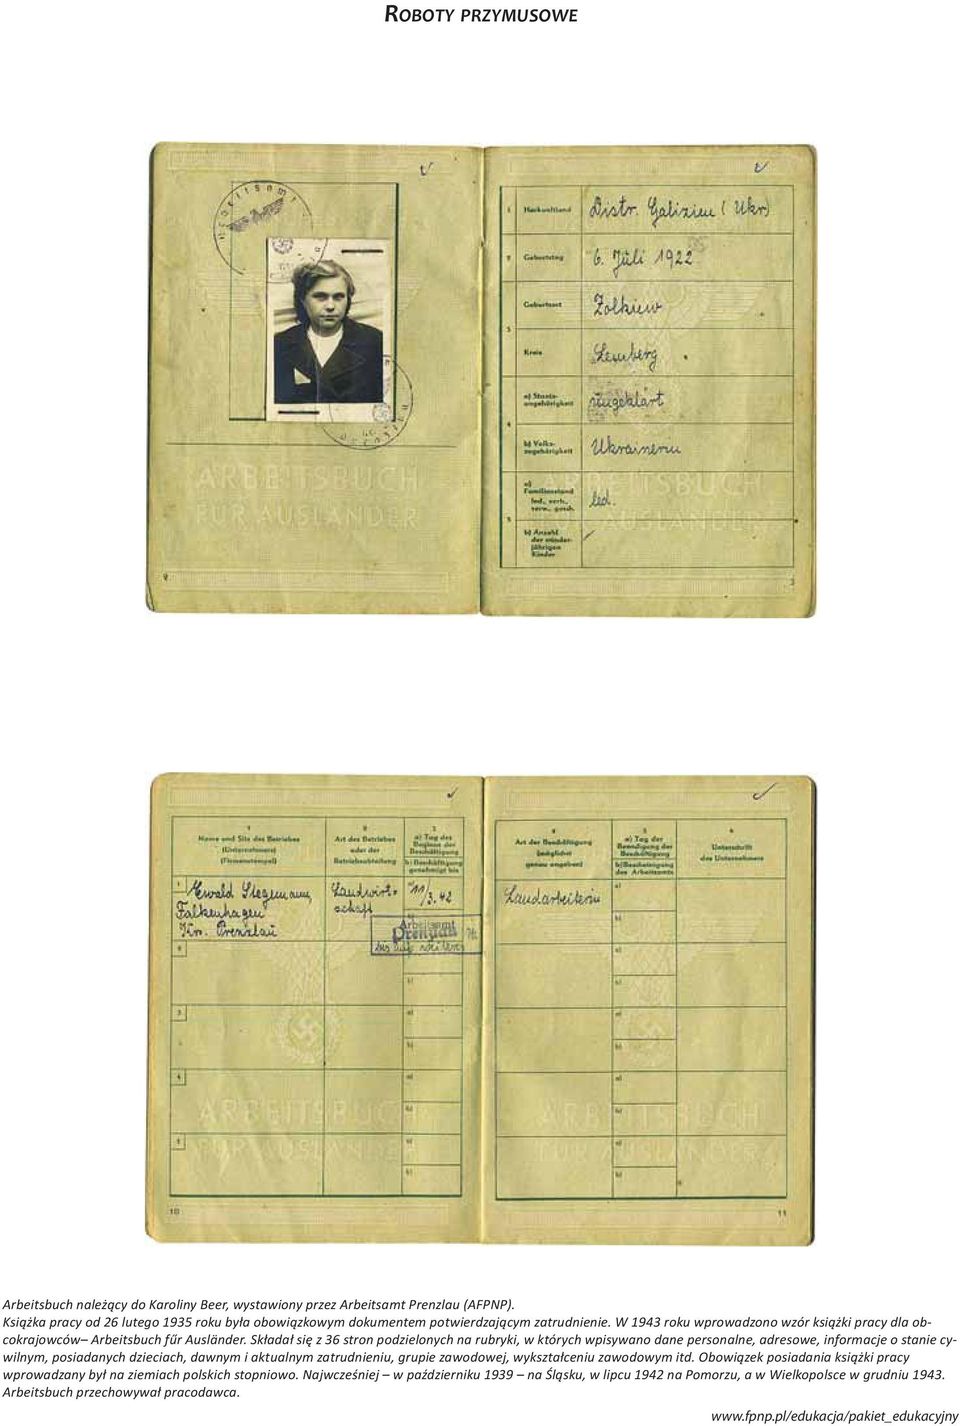 ROBOTY PRZYMUSOWE
Arbeitsamt
ARBEITSBUCH
FÜR AUSLÄNDER
2
1 Herkunftland Distr. Galizien (Ukr)
2 Geburtstag 6. Juli 1922
Geburtsort Zolkiew
3
Kreis Lemberg
a) Staats-
angehörigkeit ungeklärt
4
b) Volks-
zugehörigkeit Ukrainerin
a)
Familienstand
led., verh.,
verw., gesch. led.
5
b) Anzahl
der minder-
jährigen
Kinder
ARBEITSBUCH
FÜR AUSLÄNDER
3
1
Name und Sitz des Betriebes
(Unternehmers)
(Firmenstempel)
2
Art des Betriebes
oder der
Betriebsabteilung
3
a) Tag des
Beginns der
Beschäftigung
b) Beschäftigung
genehmigt bis
4
Art der Beschäftigung
(möglichst
genau angeben)
5
a) Tag der
Beendigung der
Beschäftigung
b) Bescheinigung
des Arbeitsamts
6
Unterschrift
des Unternehmers
1 Ewald Stegemann,
Falkenhagen
Kr. Prenzlau
Landwirt-
schaft
11/3.42
Arbeitsamt
Prenzlau
Landarbeiterin
a)
b)
2
a)
b)
b)
3
a)
b)
a)
b)
4
a)
b)
a)
b)
5
a)
b)
a)
b)
ARBEITSBUCH
FÜR AUSLÄNDER
ARBEITSBUCH
FÜR AUSLÄNDER
10
11
Arbeitsbuch należący do Karoliny Beer, wystawiony przez Arbeitsamt Prenzlau (AFPNP).
Książka pracy od 26 lutego 1935 roku była obowiązkowym dokumentem potwierdzającym zatrudnienie. W 1943 roku wprowadzono wzór książki pracy dla ob-
cokrajowców– Arbeitsbuch fűr Ausländer. Składał się z 36 stron podzielonych na rubryki, w których wpisywano dane personalne, adresowe, informacje o stanie cy-
wilnym, posiadanych dzieciach, dawnym i aktualnym zatrudnieniu, grupie zawodowej, wykształceniu zawodowym itd. Obowiązek posiadania książki pracy
wprowadzany był na ziemiach polskich stopniowo. Najwcześniej – w październiku 1939 – na Śląsku, w lipcu 1942 na Pomorzu, a w Wielkopolsce w grudniu 1943.
Arbeitsbuch przechowywał pracodawca.
www.fpnp.pl/edukacja/pakiet_edukacyjny